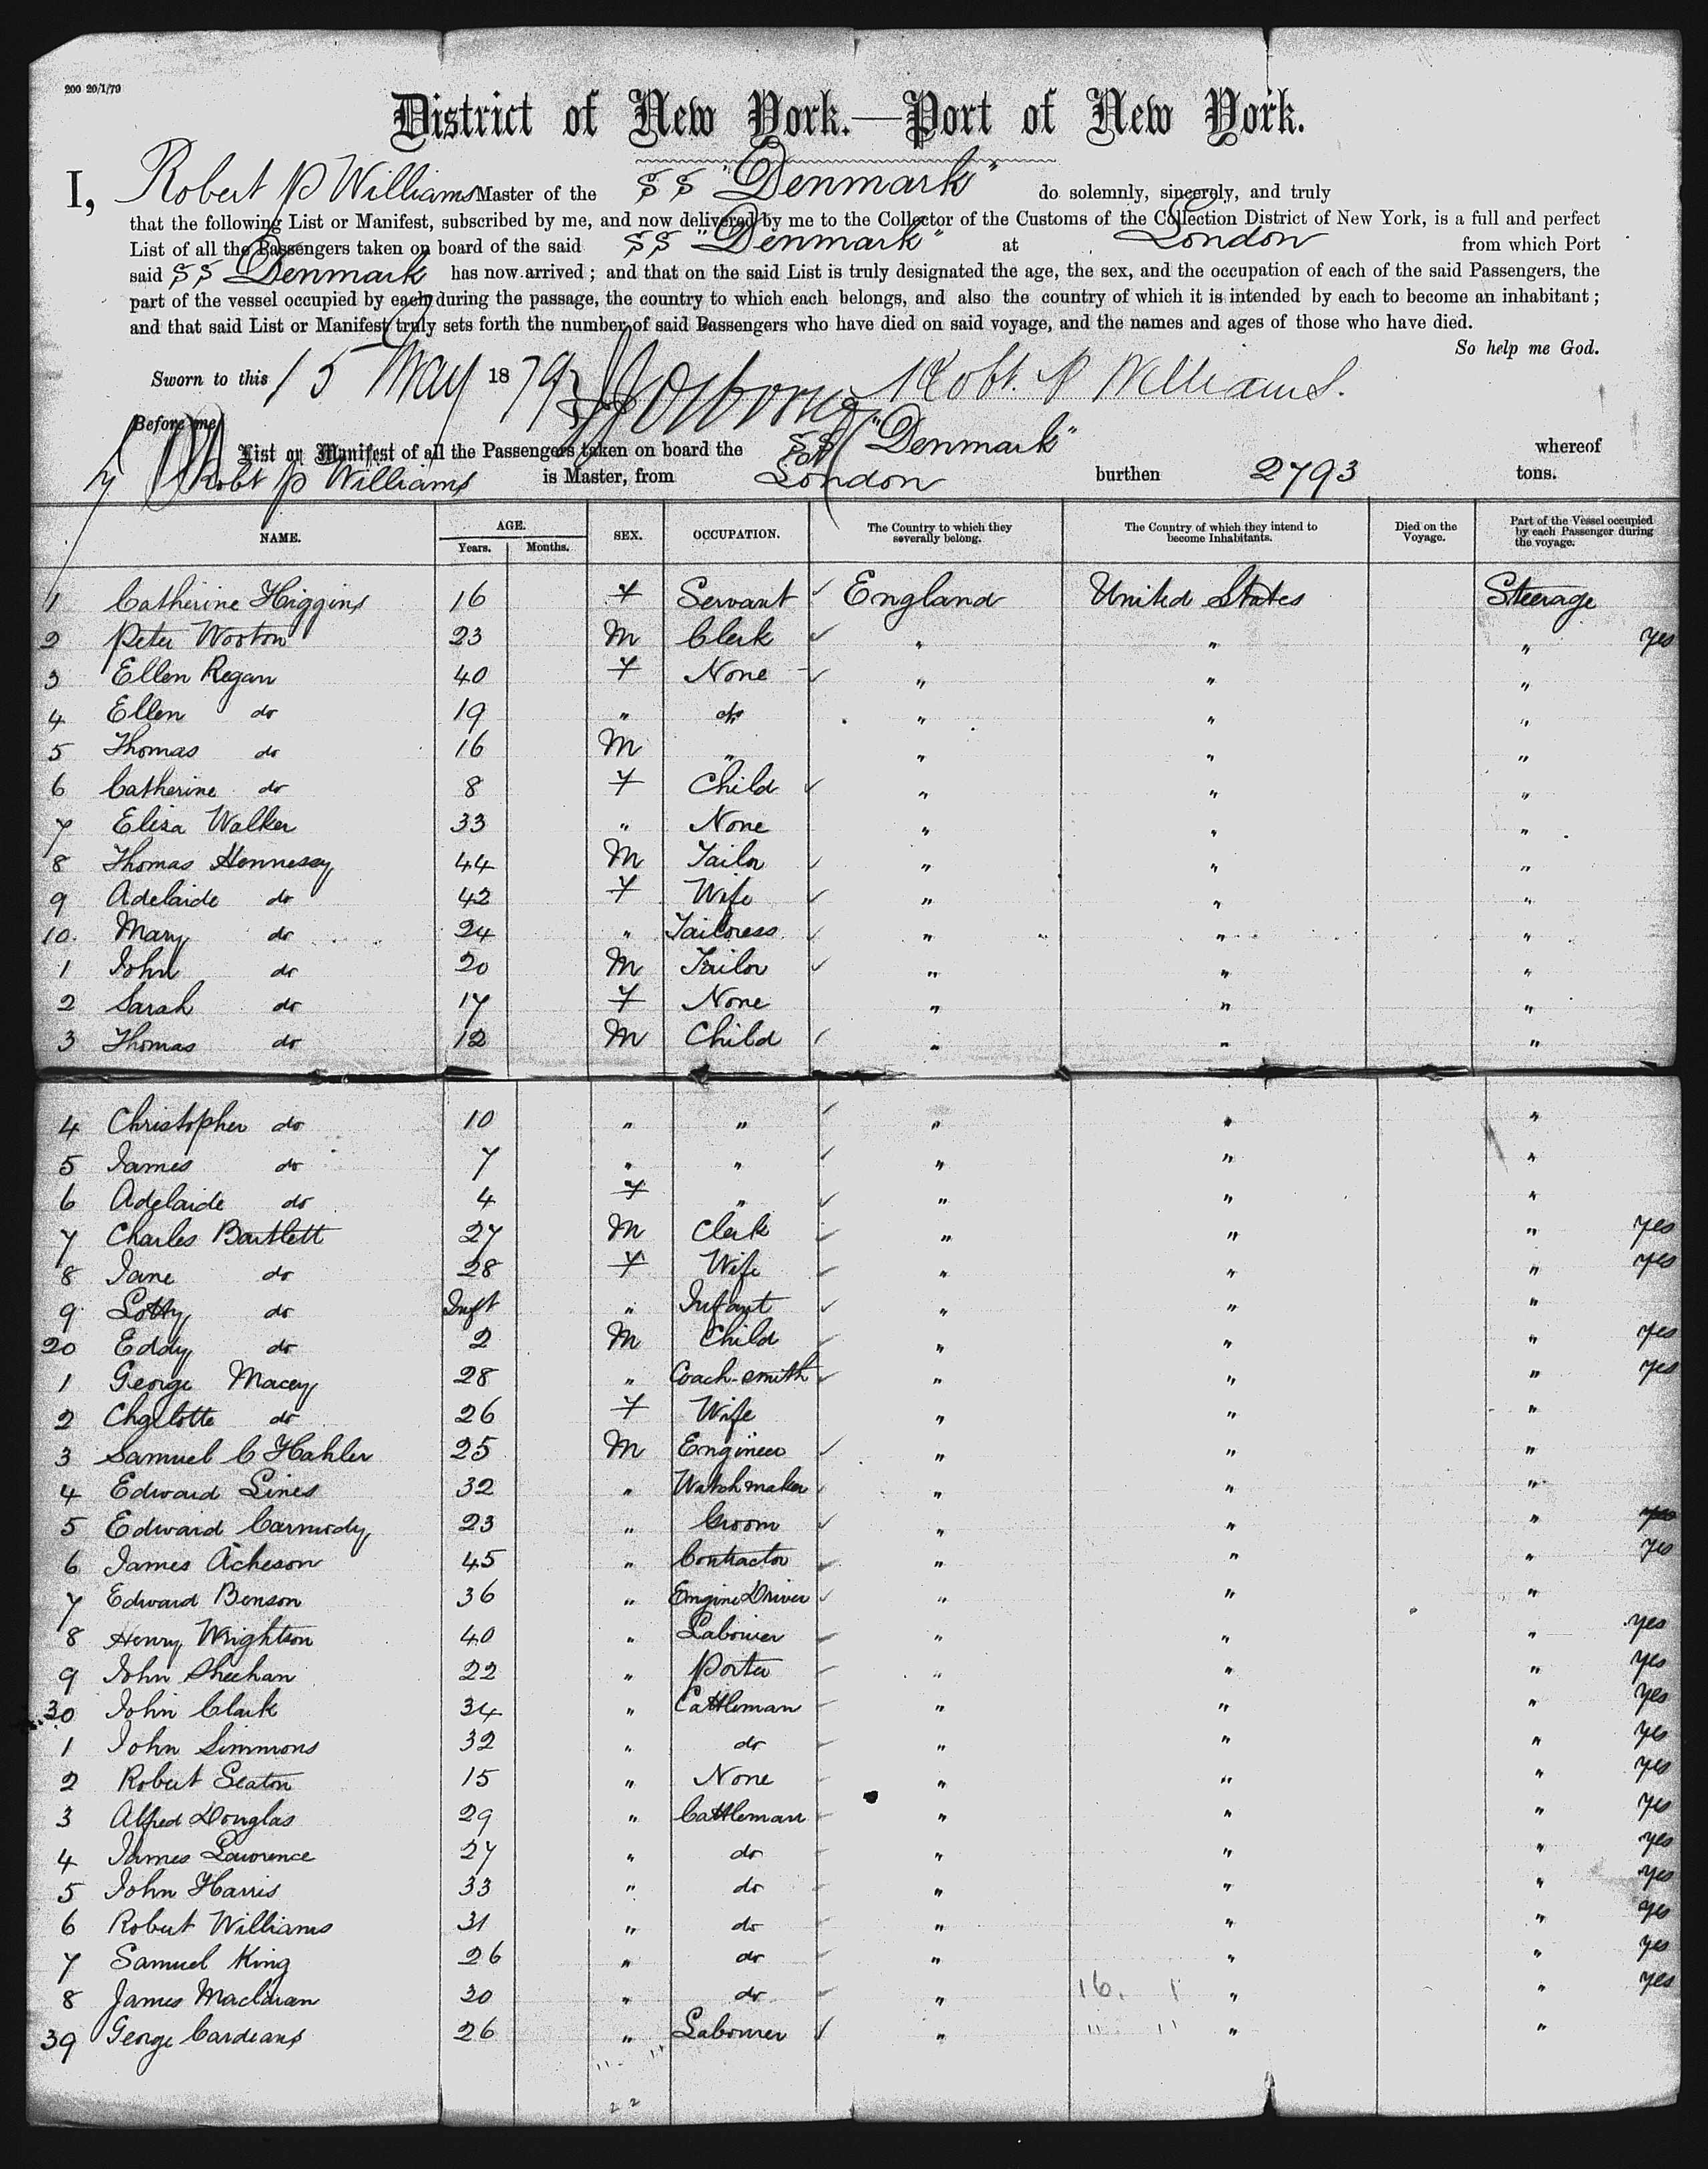 200 20/1/79
District of New York.—Port of New York.
I, Robert P Williams Master of the SS "Denmark" do solemnly, sincerely, and truly
that the following List or Manifest, subscribed by me, and now delivered by me to the Collector of the Customs of the Collection District of New York, is a full and perfect
List of all the Passengers taken on board of the said SS "Denmark" at London from which Port
said SS Denmark has now arrived; and that on the said List is truly designated the age, the sex, and the occupation of each of the said Passengers, the
part of the vessel occupied by each during the passage, the country to which each belongs, and also the country of which it is intended by each to become an inhabitant;
and that said List or Manifest truly sets forth the number of said Passengers who have died on said voyage, and the names and ages of those who have died.
So help me God.
Sworn to this 15 May 1879 Robt. P Williams.
Before me
List or Manifest of all the Passengers taken on board the SS "Denmark" whereof
Robt P Williams is Master, from London burthen 2793 tons.
NAME. AGE. Years. Months. SEX. OCCUPATION. The Country to which they severally belong. The Country of which they intend to become Inhabitants. Died on the Voyage. Part of the Vessel occupied by each Passenger during the voyage.
1 Catherine Higgins 16 F Servant ✓ England United States Steerage
2 Peter Wooton 23 M Clerk ✓ " " " Yes
3 Ellen Regan 40 F None ✓ " " "
4 Ellen do 19 " do " " "
5 Thomas do 16 M " " " "
6 Catherine do 8 F Child ✓ " " "
7 Eliza Walker 33 " None " " "
8 Thomas Hennessy 44 M Tailor ✓ " " "
9 Adelaide do 42 F Wife ✓ " " "
10. Mary do 24 " Tailoress ✓ " " "
1 John do 20 M Tailor ✓ " " "
2 Sarah do 17 F None " " "
3 Thomas do 12 M Child ✓ " " "
4 Christopher do 10 " " ✓ " " "
5 James do 7 " " ✓ " " "
6 Adelaide do 4 F " ✓ " " "
7 Charles Bartlett 27 M Clerk ✓ " " " Yes
8 Jane do 28 F Wife ✓ " " " Yes
9 Lotty do Inft " Infant ✓ " " "
20 Eddy do 2 M Child ✓ " " " Yes
1 George Macey 28 " Coach-smith ✓ " " " Yes
2 Charlotte do 26 F Wife " " "
3 Samuel C Hahler 25 M Engineer ✓ " " "
4 Edward Lines 32 " Watchmaker ✓ " " "
5 Edward Carmody 23 " Groom ✓ " " "
6 James Acheson 45 " Contractor ✓ " " " Yes
7 Edward Benson 36 " Engine Driver ✓ " " "
8 Henry Wrightson 40 " Labourer ✓ " " " Yes
9 John Sheehan 22 " Porter ✓ " " " Yes
30 John Clark 34 " Cattleman ✓ " " " Yes
1 John Simmons 32 " do ✓ " " " Yes
2 Robert Seaton 15 " None ✓ " " " Yes
3 Alfred Douglas 29 " Cattleman ✓ " " " Yes
4 James Lawrence 27 " do ✓ " " " Yes
5 John Harris 33 " do ✓ " " " Yes
6 Robert Williams 31 " do ✓ " " " Yes
7 Samuel King 26 " do ✓ " " " Yes
8 James Maclaran 30 " do ✓ " " " Yes
16. 1
39 George Cardeans 26 " Labourer ✓ " " "
22